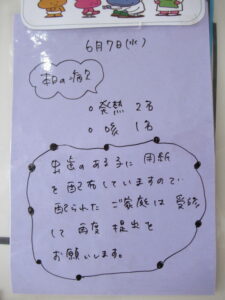 6月7日(水)
本日の病欠
○発熱 2名
○咳 1名
出席のある子に用紙
を配布していますので‥
配られたご家庭は受診
して再度提出を
お願いします。